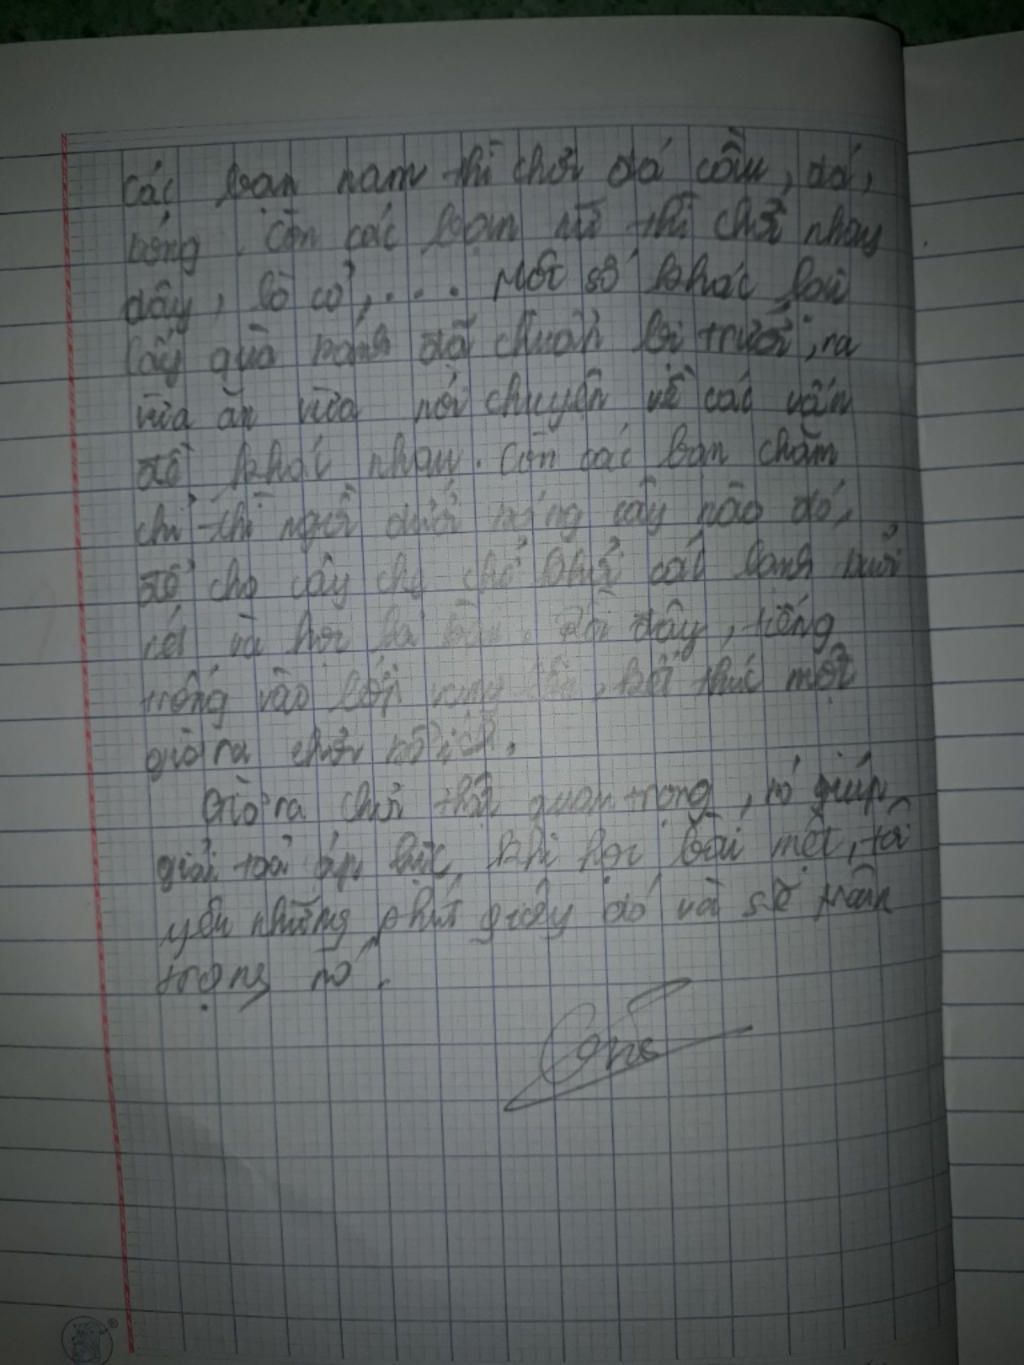 Các bạn nam thì chơi đá cầu, đá
bóng. Còn các bạn nữ thì chơi nhảy
dây, lò cò,.... Một số khác lại
lấy quà bánh đã chuẩn bị trước, ra
vừa ăn vừa nói chuyện về các vấn
đề khác nhau. Còn các bạn chăm
chỉ thì ngồi dưới bóng cây nào đó,
để cho cây che chở khỏi cái lạnh buổi
rét và học lại bài. Rồi đây, tiếng
trống vào lớp vang lên, kết thúc một
giờ ra chơi bổ ích.
Giờ ra chơi thật quan trọng, nó giúp
giải toả áp lực khi học bài mệt, tôi
yêu những phút giây đó và sẽ trân
trọng nó.